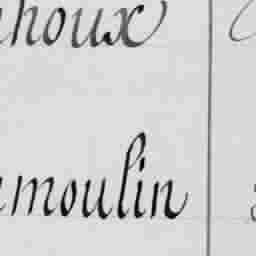 houx
moulin